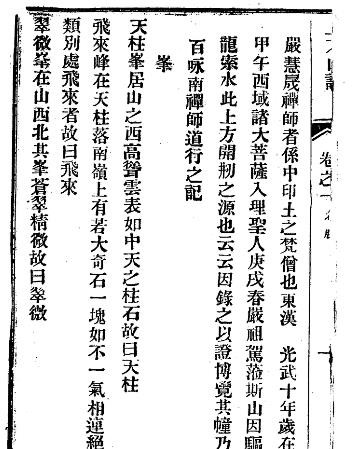 嚴慧晟禪師者係中印土之梵僧也東漢　光武十年歲在
甲午西域諸大菩薩入理聖人庚戌春嚴祖駕蒞斯山因驅
龍索水此上方開刱之源也云云因錄之以證博覽其幢乃
百咏南禪師道行之記
峯
天柱峯居山之西高聳雲表如中天之柱石故曰天柱
飛來峰在天柱落南嶺上有若大奇石一塊如不一氣相連絕
類別處飛來者故曰飛來
翠微峯在山西北其峯蒼翠精微故曰翠微